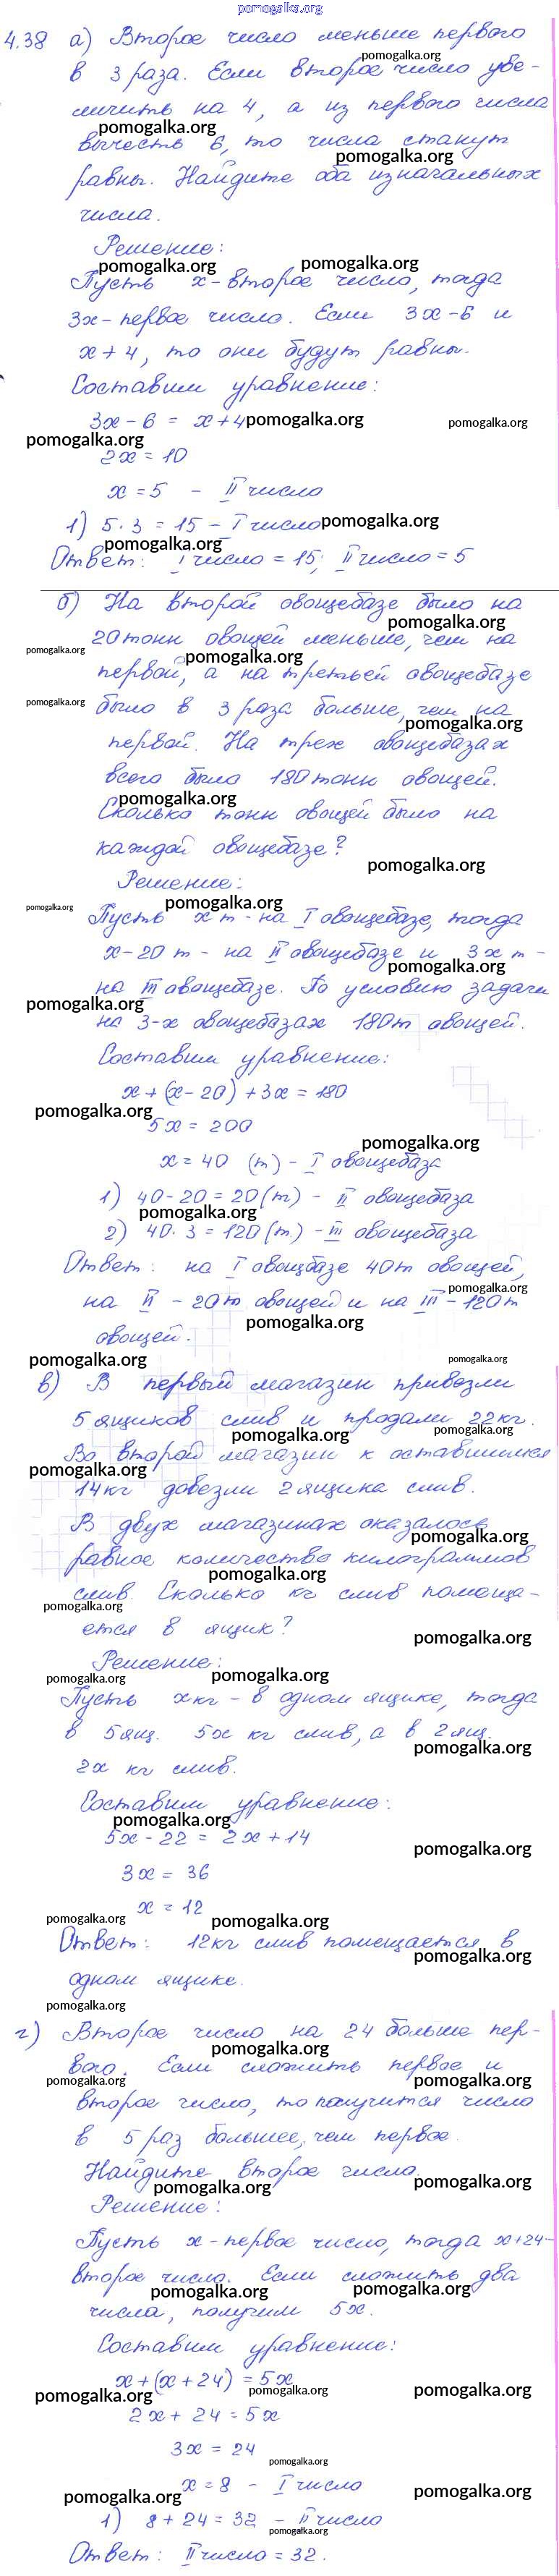 pomogalka.org
4.38 а) Второе число меньше первого
pomogalka.org
в 3 раза. Если второе число уве-
личить на 4, а из первого числа
pomogalka.org
вычесть 6, то числа станут
pomogalka.org
равны. Найдите оба изначальных
числа.
Решение:
pomogalka.org pomogalka.org
Пусть x - второе число, тогда
3x - первое число. Если 3x-6 и
x+4, то они будут равны.
Составим уравнение:
3x - 6 = x+4 pomogalka.org pomogalka.org
pomogalka.org
2x = 10
x = 5 - II число
1) 5·3 = 15 - I число pomogalka.org
pomogalka.org
Ответ: I число = 15; II число = 5
б) На второй овощебазе было на
pomogalka.org
20 тонн овощей меньше, чем на
pomogalka.org pomogalka.org
первой, а на третьей овощебазе
pomogalka.org
было в 3 раза больше, чем на
pomogalka.org
первой. На трех овощебазах
всего было 180 тонн овощей.
pomogalka.org
Сколько тонн овощей было на
каждой овощебазе?
pomogalka.org
Решение:
pomogalka.org pomogalka.org
Пусть x т - на I овощебазе, тогда
x-20 т - на II овощебазе и 3x т -
pomogalka.org
на III овощебазе. По условию задачи
pomogalka.org
на 3-х овощебазах 180 т овощей.
Составим уравнение:
x + (x - 20) + 3x = 180
pomogalka.org
5x = 200
pomogalka.org
x = 40 (т) - I овощебаза
1) 40-20 = 20 (т) - II овощебаза
pomogalka.org
2) 40·3 = 120 (т) - III овощебаза
Ответ: на I овощбазе 40 т овощей,
pomogalka.org
на II - 20 т овощей и на III - 120 т
pomogalka.org
овощей.
pomogalka.org pomogalka.org
в) В первый магазин привезли
5 ящиков слив и продали 22 кг.
pomogalka.org pomogalka.org
Во второй магазин к оставшимся
pomogalka.org
14 кг довезли 2 ящика слив.
В двух магазинах оказалось
pomogalka.org
равное количество килограммов
pomogalka.org
слив. Сколько кг слив помеща-
pomogalka.org
ется в ящик?
pomogalka.org
Решение:
pomogalka.org pomogalka.org
Пусть x кг - в одном ящике, тогда
в 5 ящ. 5x кг слив, а в 2 ящ.
pomogalka.org
2x кг слив.
Составим уравнение:
pomogalka.org
5x - 22 = 2x + 14
pomogalka.org
3x = 36
x = 12
pomogalka.org pomogalka.org
Ответ: 12 кг слив помещается в
pomogalka.org
одном ящике.
pomogalka.org
г) Второе число на 24 больше пер-
pomogalka.org
вого. Если сложить первое и
pomogalka.org pomogalka.org
второе число, то получится число
в 5 раз большее, чем первое.
Найдите второе число.
pomogalka.org pomogalka.org
Решение:
Пусть x - первое число, тогда x+24-
второе число. Если сложить два
pomogalka.org pomogalka.org
числа, получим 5x.
Составим уравнение:
x + (x + 24) = 5x
pomogalka.org pomogalka.org pomogalka.org
2x + 24 = 5x
3x = 24
pomogalka.org
x = 8 - I число
pomogalka.org pomogalka.org
1) 8 + 24 = 32 - II число
pomogalka.org
Ответ: II число = 32.